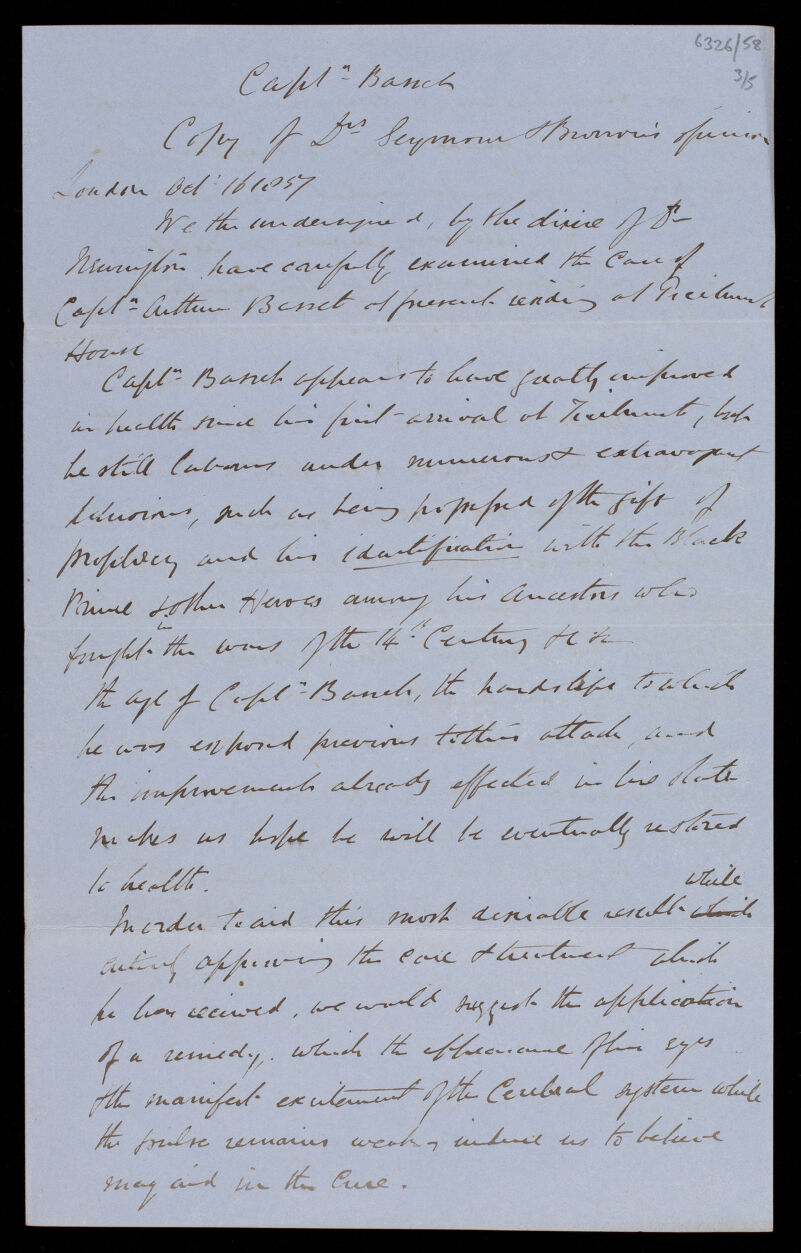 6326/58
3/5
Captn Basset
Copy of Drs Seymour & Browin's opinion
London Oct 16 1857
We the undersigned, by the desire of Dr
Newington have carefully examined the Case of
Captn Arthur Basset at present residing at Ticehurst
House
Captn Basset appears to have greatly improved
in health since his first arrival at Ticehurst, but
he still labours under numerous & extravagant
delusions, such as being possessed of the gift of
prophecy and his identification with the Black
Prince & other Heroes among his Ancestors who
fought in the wars of the 14th Century &c &c
the age of Captn Basset, the hardships to which
he was exposed previous to this attack, and
the improvement already effected in his state
makes us hope he will be eventually restored
to health.
In order to aid this most desirable result which while
entirely approving the care & treatment which
he has received, we would suggest the application
of a remedy, which the appearance of his eyes
& the manifest excitement of the Cerebral system while
the pulse remains weak, induce us to believe
may aid in the Cure.